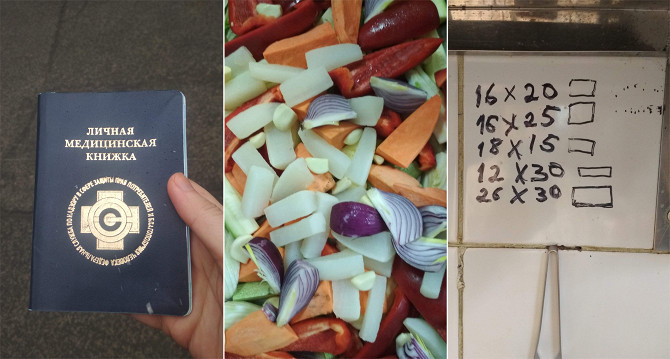 ЛИЧНАЯ
МЕДИЦИНСКАЯ
КНИЖКА
ФЕДЕРАЛЬНАЯ СЛУЖБА ПО НАДЗОРУ В СФЕРЕ ЗАЩИТЫ ПРАВ ПОТРЕБИТЕЛЕЙ И БЛАГОПОЛУЧИЯ ЧЕЛОВЕКА
16 x 20
16 x 25
18 x 15
12 x 30
26 x 30